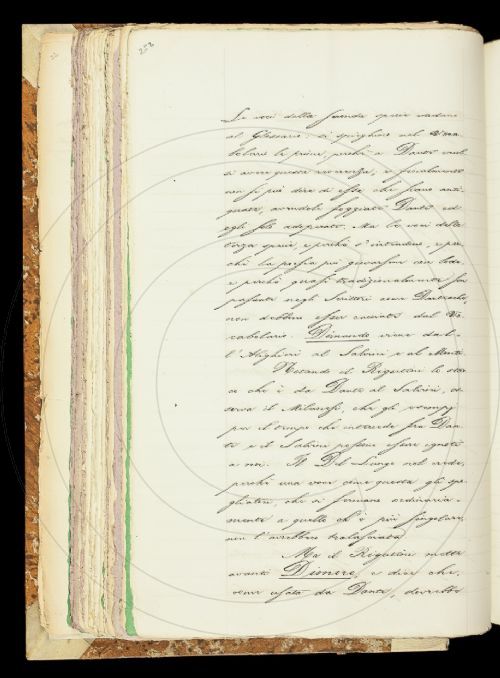 202
Le voci della seconda specie vadano
al Glossario; si spieghino nel Voca-
bolario le prime, perchè a Dante vuol-
si avere questa riverenza, e finalmente
non si può dire di esse che siano anti-
quate, avendole foggiate Dante ed
egli solo adoperate. Ma le voci della
terza specie, e perchè s'intendono, e per-
chè la poesia può giovarsene con lode,
e perchè quasi tradizionalmente son
passate negli Scrittori
non debbono esser cacciate dal Vo-
cabolario. Dimando viene dal-
l'Alighieri al Salvini e al Monti.
Notando il Rigutini
che è da Dante al Salvini, os-
serva il Milanesi, che gli esempj
per il tempo che intercede fra Dan-
te e il Salvini possono essere ignoti
a noi. Il Del Lungo nol crede,
perchè una voce come questa gli spo-
gliatori, che si fermano ordinaria-
mente a quello ch'è più singolare,
non l'avrebbero tralasciata.
Ma il Rigutini mette
avanti Dismere, e dice che,
come usata da Dante, dovrebbe